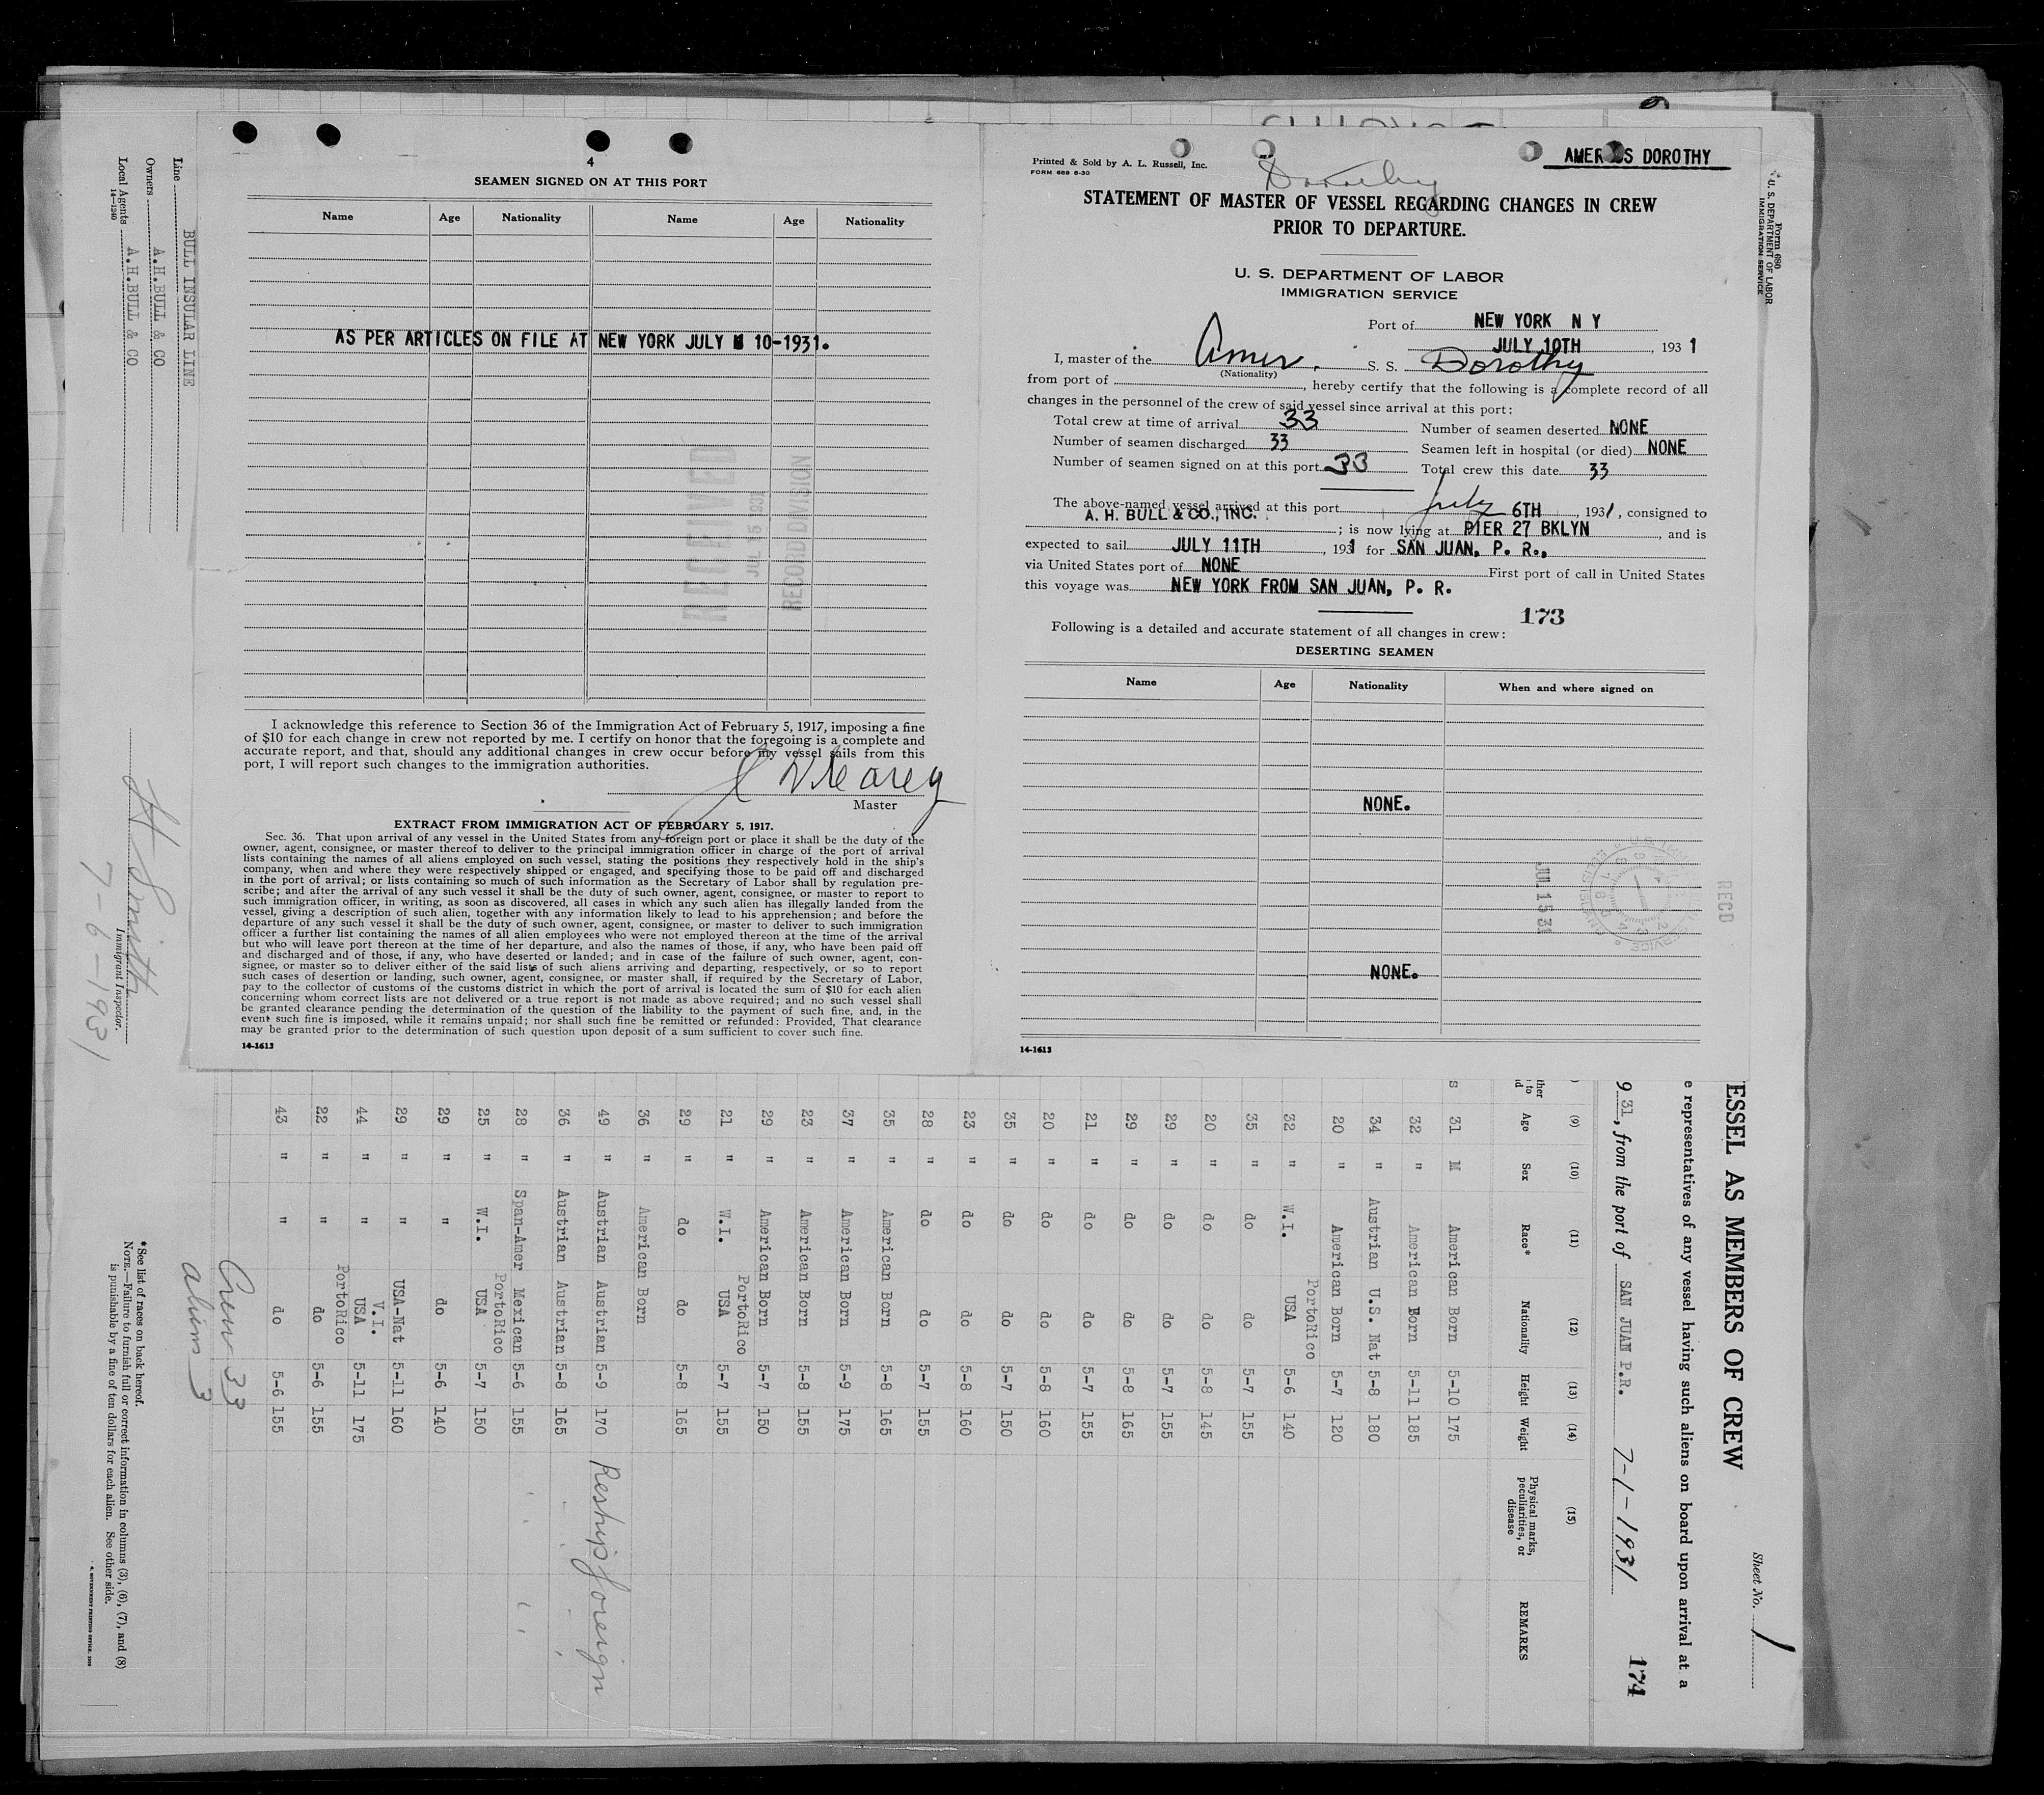 4
SEAMEN SIGNED ON AT THIS PORT
Name Age Nationality Name Age Nationality
AS PER ARTICLES ON FILE AT NEW YORK JULY 10-1931.
RECEIVED
JUL 15 1931
RECORD DIVISION
I acknowledge this reference to Section 36 of the Immigration Act of February 5, 1917, imposing a fine
of $10 for each change in crew not reported by me. I certify on honor that the foregoing is a complete and
accurate report, and that, should any additional changes in crew occur before my vessel sails from this
port, I will report such changes to the immigration authorities.
Master
EXTRACT FROM IMMIGRATION ACT OF FEBRUARY 5, 1917.
Sec. 36. That upon arrival of any vessel in the United States from any foreign port or place it shall be the duty of the
owner, agent, consignee, or master thereof to deliver to the principal immigration officer in charge of the port of arrival
lists containing the names of all aliens employed on such vessel, stating the positions they respectively hold in the ship's
company, when and where they were respectively shipped or engaged, and specifying those to be paid off and discharged
in the port of arrival; or lists containing so much of such information as the Secretary of Labor shall by regulation pre-
scribe; and after the arrival of any such vessel it shall be the duty of such owner, agent, consignee, or master to report to
such immigration officer, in writing, as soon as discovered, all cases in which any such alien has illegally landed from the
vessel, giving a description of such alien, together with any information likely to lead to his apprehension; and before the
departure of any such vessel it shall be the duty of such owner, agent, consignee, or master to deliver to such immigration
officer a further list containing the names of all alien employees who were not employed thereon at the time of the arrival
but who will leave port thereon at the time of her departure, and also the names of those, if any, who have been paid off
and discharged and of those, if any, who have deserted or landed; and in case of the failure of such owner, agent, con-
signee, or master so to deliver either of the said lists of such aliens arriving and departing, respectively, or so to report
such cases of desertion or landing, such owner, agent, consignee, or master shall, if required by the Secretary of Labor,
pay to the collector of customs of the customs district in which the port of arrival is located the sum of $10 for each alien
concerning whom correct lists are not delivered or a true report is not made as above required; and no such vessel shall
be granted clearance pending the determination of the question of the liability to the payment of such fine, and, in the
event such fine is imposed, while it remains unpaid; nor shall such fine be remitted or refunded: Provided, That clearance
may be granted prior to the determination of such question upon deposit of a sum sufficient to cover such fine.
14-1613
Printed & Sold by A. L. Russell, Inc.
FORM 689 6-30
AMER SS DOROTHY
Dorothy
STATEMENT OF MASTER OF VESSEL REGARDING CHANGES IN CREW
PRIOR TO DEPARTURE.
U. S. DEPARTMENT OF LABOR
IMMIGRATION SERVICE
Port of NEW YORK N Y
JULY 10TH, 1931
I, master of the Amer. S. S. Dorothy
(Nationality)
from port of , hereby certify that the following is a complete record of all
changes in the personnel of the crew of said vessel since arrival at this port:
Total crew at time of arrival 33 Number of seamen deserted NONE
Number of seamen discharged 33 Seamen left in hospital (or died) NONE
Number of seamen signed on at this port 33 Total crew this date 33
The above-named vessel arrived at this port July 6TH, 1931, consigned to
A. H. BULL & CO., INC. ; is now lying at PIER 27 BKLYN, and is
expected to sail JULY 11TH, 1931 for SAN JUAN, P. R.,
via United States port of NONE First port of call in United States
this voyage was NEW YORK FROM SAN JUAN, P. R.
173
Following is a detailed and accurate statement of all changes in crew:
DESERTING SEAMEN
Name Age Nationality When and where signed on
NONE.
NONE.
JUL 15 31
RECD
14-1613
Form 680
U. S. DEPARTMENT OF LABOR
IMMIGRATION SERVICE
Sheet No. 1
ESSEL AS MEMBERS OF CREW
e representatives of any vessel having such aliens on board upon arrival at a
9 31, from the port of SAN JUAN P.R. 7-1-1931
174
(9) (10) (11) (12) (13) (14) (15)
Age Sex Race* Nationality Height Weight Physical marks, peculiarities, or disease REMARKS
31 M American Born 5-10 175
32 " American Born 5-11 185
34 " Austrian U.S. Nat 5-8 180
20 " American Born 5-7 120
32 " W.I. PortoRico USA 5-6 140
35 " do do 5-7 155
20 " do do 5-8 145
29 " do do 5-7 155
29 " do do 5-8 165
21 " do do 5-7 155
20 " do do 5-8 160
35 " do do 5-7 150
23 " do do 5-8 160
28 " do do 5-7 155
35 " American Born 5-8 165
37 " American Born 5-9 175
23 " American Born 5-8 155
29 " American Born 5-7 150
21 " W.I. PortoRico USA 5-7 155
29 " do do 5-8 165
36 " American Born
49 " Austrian Austrian 5-9 170 Reship foreign
36 " Austrian Austrian 5-8 165
28 " Span-Amer Mexican 5-6 155
25 " W.I. PortoRico USA 5-7 150
29 " " do 5-6 140
29 " " USA-Nat 5-11 160
44 " " V.I. USA 5-11 175
22 " " PortoRico do 5-6 155
43 " " do 5-6 155
Crew 33
aliens 3
Line BULL INSULAR LINE
Owners A.H.BULL & CO
Local Agents A.H.BULL & CO
14-1240
H Smith
Immigrant Inspector.
7-6-1931
*See list of races on back hereof.
NOTE.—Failure to furnish full or correct information in columns (3), (6), (7), and (8)
is punishable by a fine of ten dollars for each alien. See other side.